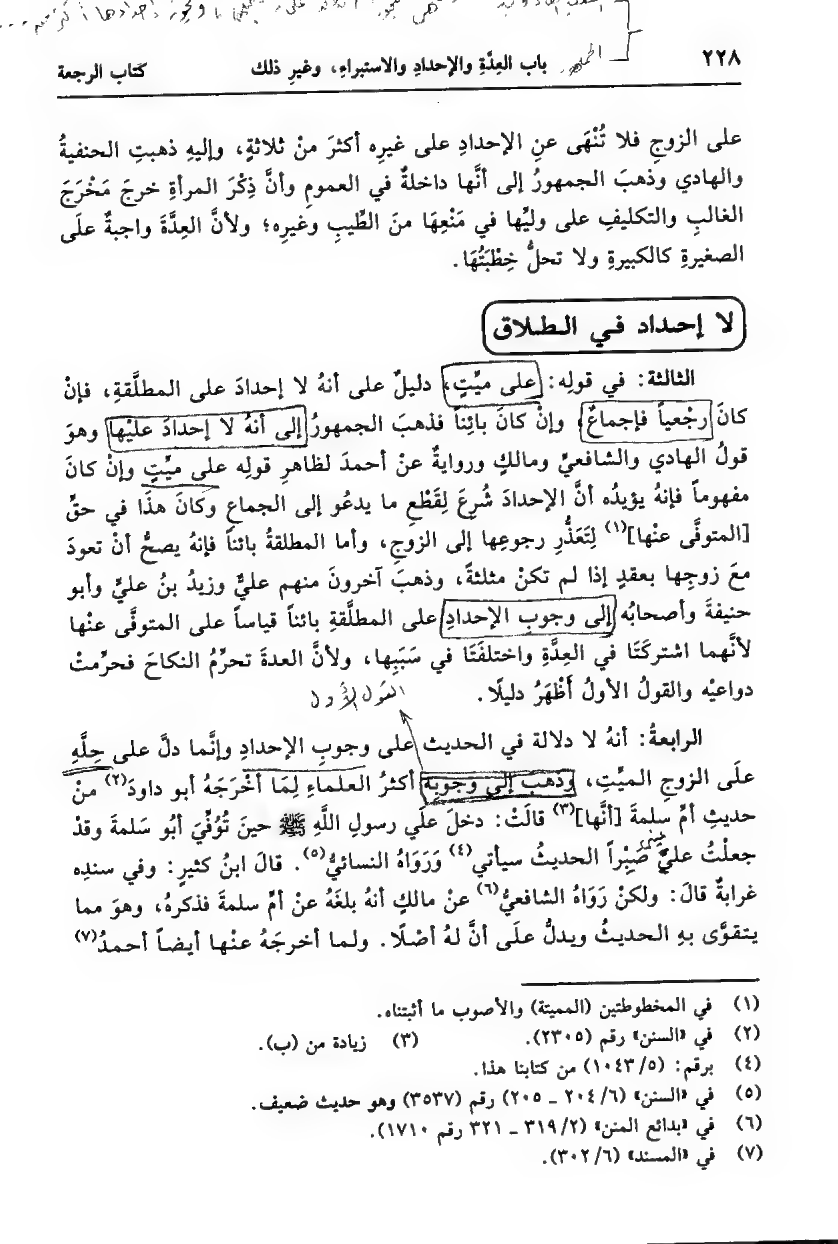 الجمهور
٢٢٨ باب العِدَّةِ والإحدادِ والاستبراءِ، وغيرِ ذلك كتاب الرجعة
على الزوجِ فلا تُنْهَى عنِ الإحدادِ على غيرِه أكثرَ منْ ثلاثةٍ، وإليهِ ذهبتِ الحنفيةُ
والهادي وذهبَ الجمهورُ إلى أنَّها داخلةٌ في العمومِ وأنَّ ذِكْرَ المرأةِ خرجَ مَخْرَجَ
الغالبِ والتكليفِ على وليِّها في مَنْعِهَا منَ الطِّيبِ وغيرِه؛ ولأنَّ العِدَّةَ واجبةٌ علَى
الصغيرةِ كالكبيرةِ ولا تحلُّ خِطْبَتُهَا.
لا إحداد في الطلاق
الثالثة: في قولِه: على ميِّتٍ، دليلٌ على أنهُ لا إحدادَ على المطلَّقةِ، فإنْ
كانَ رجْعياً فإجماعٌ، وإنْ كانَ بائِناً فذهبَ الجمهورُ إلى أنهُ لا إحدادَ عليْها وهوَ
قولُ الهادي والشافعيِّ ومالكٍ وروايةٌ عنْ أحمدَ لظاهرِ قولِه على ميِّتٍ وإنْ كانَ
مفهوماً فإنهُ يؤيدُه أنَّ الإحدادَ شُرِعَ لِقَطْعِ ما يدعُو إلى الجماعِ وكانَ هذَا في حقِّ
[المتوفَّى عنْها](١) لِتَعَذُّرِ رجوعِها إلى الزوجِ، وأما المطلقةُ بائناً فإنهُ يصحُّ أنْ تعودَ
معَ زوجِها بعقدٍ إذا لم تكنْ مثلثةً، وذهبَ آخرونَ منهم عليٌّ وزيدُ بنُ عليٍّ وأبو
حنيفةَ وأصحابُه إلى وجوبِ الإحدادِ على المطلَّقةِ بائناً قياساً على المتوفَّى عنْها
لأنَّهما اشتركَتَا في العِدَّةِ واختلفَتَا في سَبَبِها، ولأنَّ العدةَ تحرِّمُ النكاحَ فحرَّمتْ
دواعيْه والقولُ الأولُ أَظْهَرُ دليلًا.
القول الأول
الرابعةُ: أنهُ لا دلالة في الحديث على وجوبِ الإحدادِ وإنَّما دلَّ على حِلِّهِ
علَى الزوجِ الميِّتِ، وذهب إلى وجوبِه أكثرُ العلماءِ لِمَا أخْرَجَهُ أبو داودَ(٢) منْ
حديثِ أمِّ سلمةَ [أنَّها](٣) قالَتْ: دخلَ علَي رسولِ اللَّهِ ﷺ حينَ تُوُفِّيَ أبُو سَلمةَ وقدْ
جعلْتُ عليَّ صَبْراً الحديثُ سيأتي(٤) وَرَوَاهُ النسائيُّ(٥). قالَ ابنُ كثيرٍ: وفي سندِه
غرابةٌ قالَ: ولكنْ رَوَاهُ الشافعيُّ(٦) عنْ مالكٍ أنهُ بلغَهُ عنْ أمِّ سلمةَ فذكرهُ، وهوَ مما
يتقوَّى بهِ الحديثُ ويدلُّ علَى أنَّ لهُ أصْلًا. ولما أخرجَهُ عنْها أيضاً أحمدُ(٧)
(١) في المخطوطتين (المميتة) والأصوب ما أثبتناه.
(٢) في «السنن» رقم (٢٣٠٥). (٣) زيادة من (ب).
(٤) برقم: (١٠٤٣/٥) من كتابنا هذا.
(٥) في «السنن» (٢٠٤/٦ ـ ٢٠٥) رقم (٣٥٣٧) وهو حديث ضعيف.
(٦) في «بدائع المنن» (٣١٩/٢ ـ ٣٢١ رقم ١٧١٠).
(٧) في «المسند» (٣٠٢/٦).